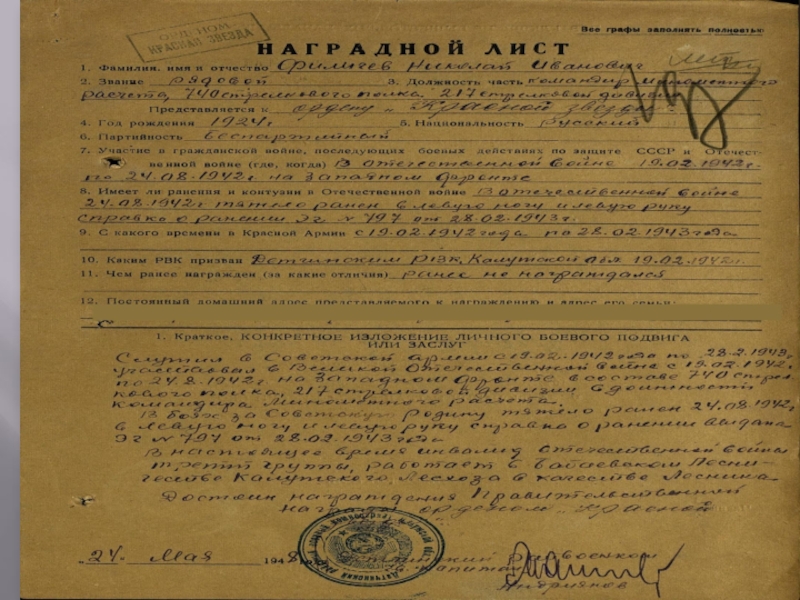 ОРД. НОМ.
КРАСНАЯ ЗВЕЗДА
Все графы заполнять полностью
НАГРАДНОЙ ЛИСТ
1. Фамилия, имя и отчество Филичев Николай Иванович
2. Звание рядовой 3. Должность часть командир минометного
расчета, 740 стрелкового полка, 217 стрелковой дивизии
Представляется к ордену „Красной звезды"
4. Год рождения 1924 г 5. Национальность Русский
6. Партийность Беспартийный
7. Участие в гражданской войне, последующих боевых действиях по защите СССР и Отечест-
венной войне (где, когда) В Отечественной войне 19.02.1942г.
по 24.08.1942г. на Западном фронте
8. Имеет ли ранения и контузии в Отечественной войне В отечественной войне
24.08.1942г тяжело ранен в левую ногу и левую руку
справка о ранении Эг N 797 от 28.02.1943г.
9. С какого времени в Красной Армии с 19.02.1942 года по 28.02.1943 года
10. Каким РВК призван Детчинским РВК, Калужской обл 19.02.1942г.
11. Чем ранее награжден (за какие отличия) ранее не награждался
12. Постоянный домашний адрес представляемого к награждению и адрес его семьи:
1. Краткое, КОНКРЕТНОЕ ИЗЛОЖЕНИЕ ЛИЧНОГО БОЕВОГО ПОДВИГА
ИЛИ ЗАСЛУГ
Служил в Советской армии с 19.02.1942 года по 28.2.1943г.
участвовал в Великой Отечественной войне с 19.02.1942г.
по 24.8.1942г. на Западном фронте в составе 740 стрел-
кового полка, 217 стрелковой дивизии в должности
Командира Минометного расчета.
В боях за Советскую Родину тяжело ранен 24.08.1942г
в левую ногу и левую руку справка о ранении выдана
Эг N 797 от 28.02.1943 года
В настоящее время инвалид отечественной войны
третей группы, работает в Бабаевском Лесни-
честве Калужского Лесхоза в качестве Лесника
Достоин награждения Правительственной
награды орденом „Красной
„24" Мая 194 райвоенком
капитан
Андриянов